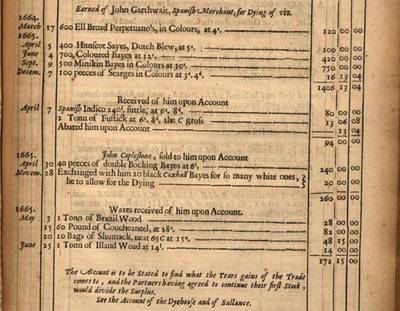 Earned of John Garthwait, Spanish Merchant, for Dying of viz.
1664.
March 17 600 Ell Broad Perpetuano's, in Colours, at 4s. 120 00 00
1665.
April 5 400 Hunscot Sayes, Dutch Blew, at 5s. 100 00 00
June 4 700 Coloured Bayes at 12s. 420 00 00
Sept. 9 500 Minikin Bayes in Colours at 30s. 750 00 00
Decem. 7 100 peeces of Searges in Colours at 3s. 4d. 16 13 04
1406 13 04
Received of him upon Account
April 7 Spanish Indico 240l. suttle, at 6s. 8d. 80 00 00
2 Tonn of Fustick at 6s. 8d. the C gross 13 06 08
Abated him upon Account 13 04
94 00 00
1665. John Coplestone, sold to him upon Account
April 30 40 peeces of double Bocking Bayes at 6l. 240 00 00
Novem. 28 Exchanged with him 20 black Coxhal Bayes for so many white ones,
he to allow for the Dying 20 00 00
260 00 00
1665. Waxes received of him upon Account.
May 3 1 Tonn of Brazil Wood 28 00 00
15 60 Pound of Coucheaneel, at 28s. 82 00 00
20 10 Bags of Shumack, neat 65 C at 15s. 48 15 00
June 25 1 Tonn of Illand Wood at 14l. 14 00 00
172 15 00
The Account is to be Stated to find what the Years gains of the Trade
comes to, and the Partners having agreed to continue their first Stock,
would divide the Surplus.
See the Account of the Dyehouse and of Ballance.